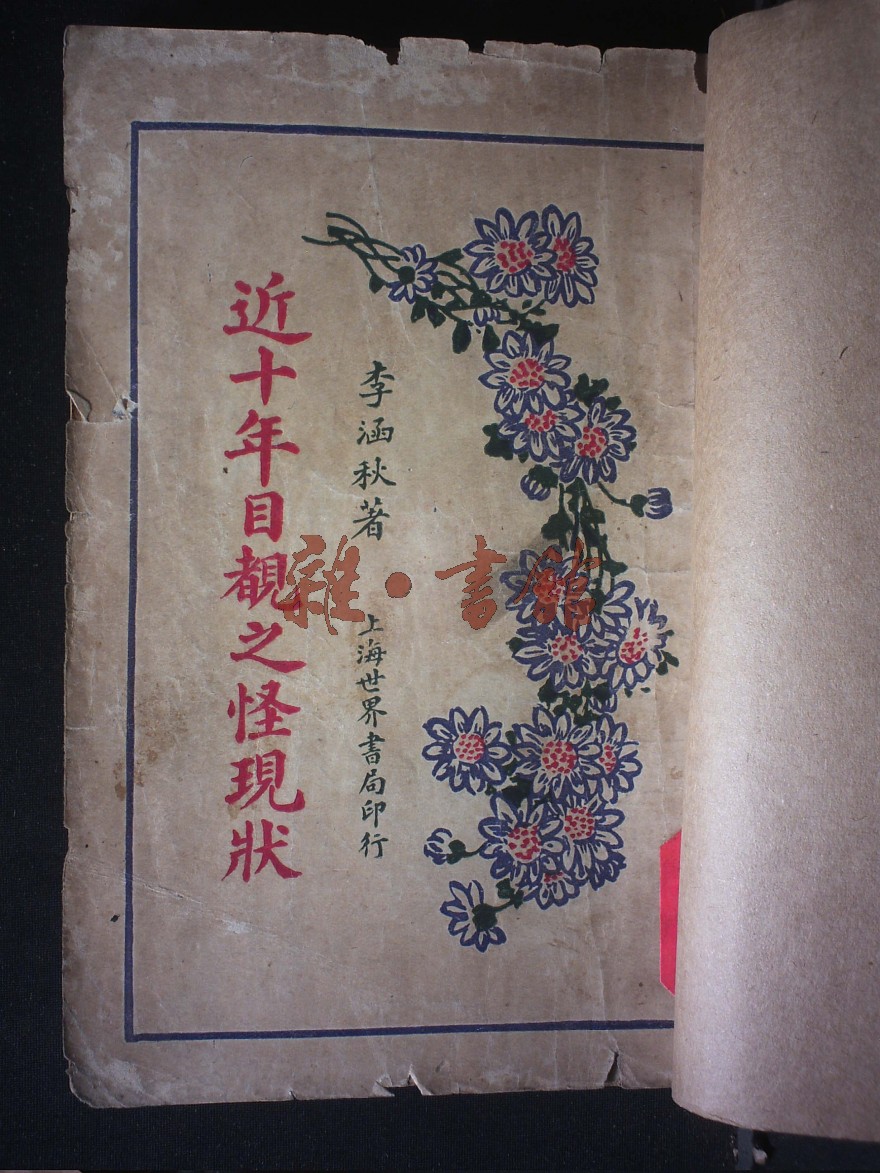 李涵秋著　上海世界書局印行
近十年目覩之怪現狀
雜·書館